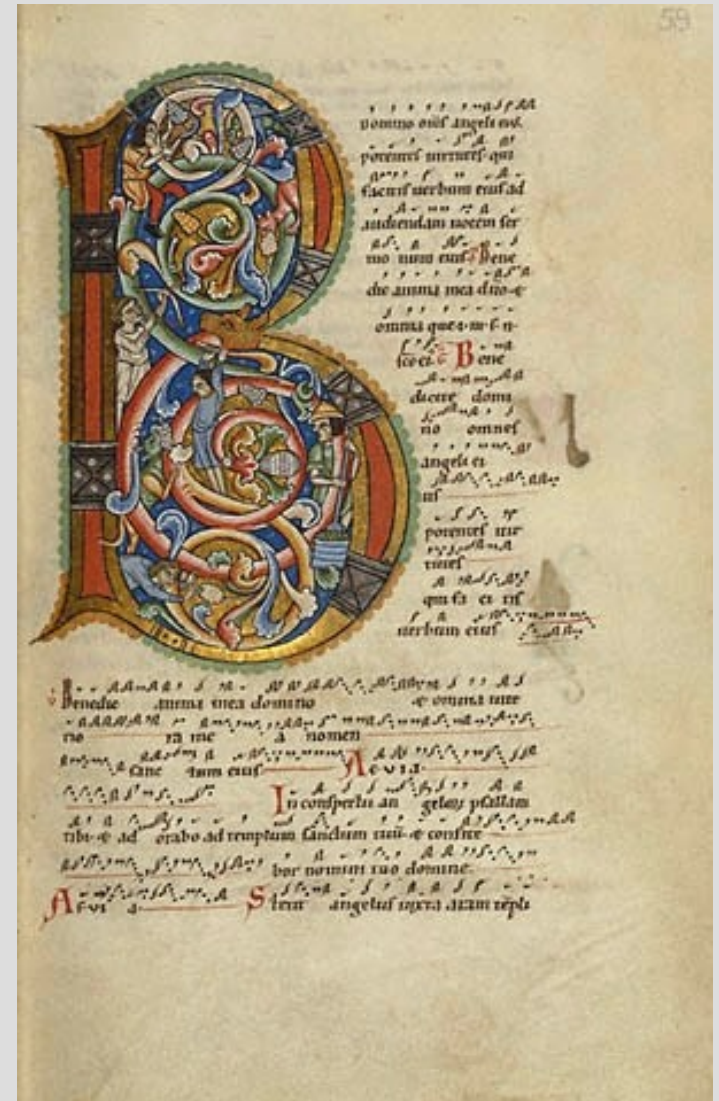 59
B
domino oms angeli eius
potentes uirtutes qui
facitis uerbum eius ad
audiendam uocem ser
mo num eius Bene
dic anima mea dno &
omnia que
Bene
dicite domi
no omnes
angeli ei
us
potentes uir
tutes
qui fa ci tis
uerbum eius
Benedic anima mea domino & omnia inte
rio ra me a nomen
sanc tum eius Aeuia
In conspectu an gelorum psallam
tibi & ad orabo ad templum sanctum tuū & confite
bor nomini tuo domine
Aeui a Stetit angelus iuxta aram tēpli